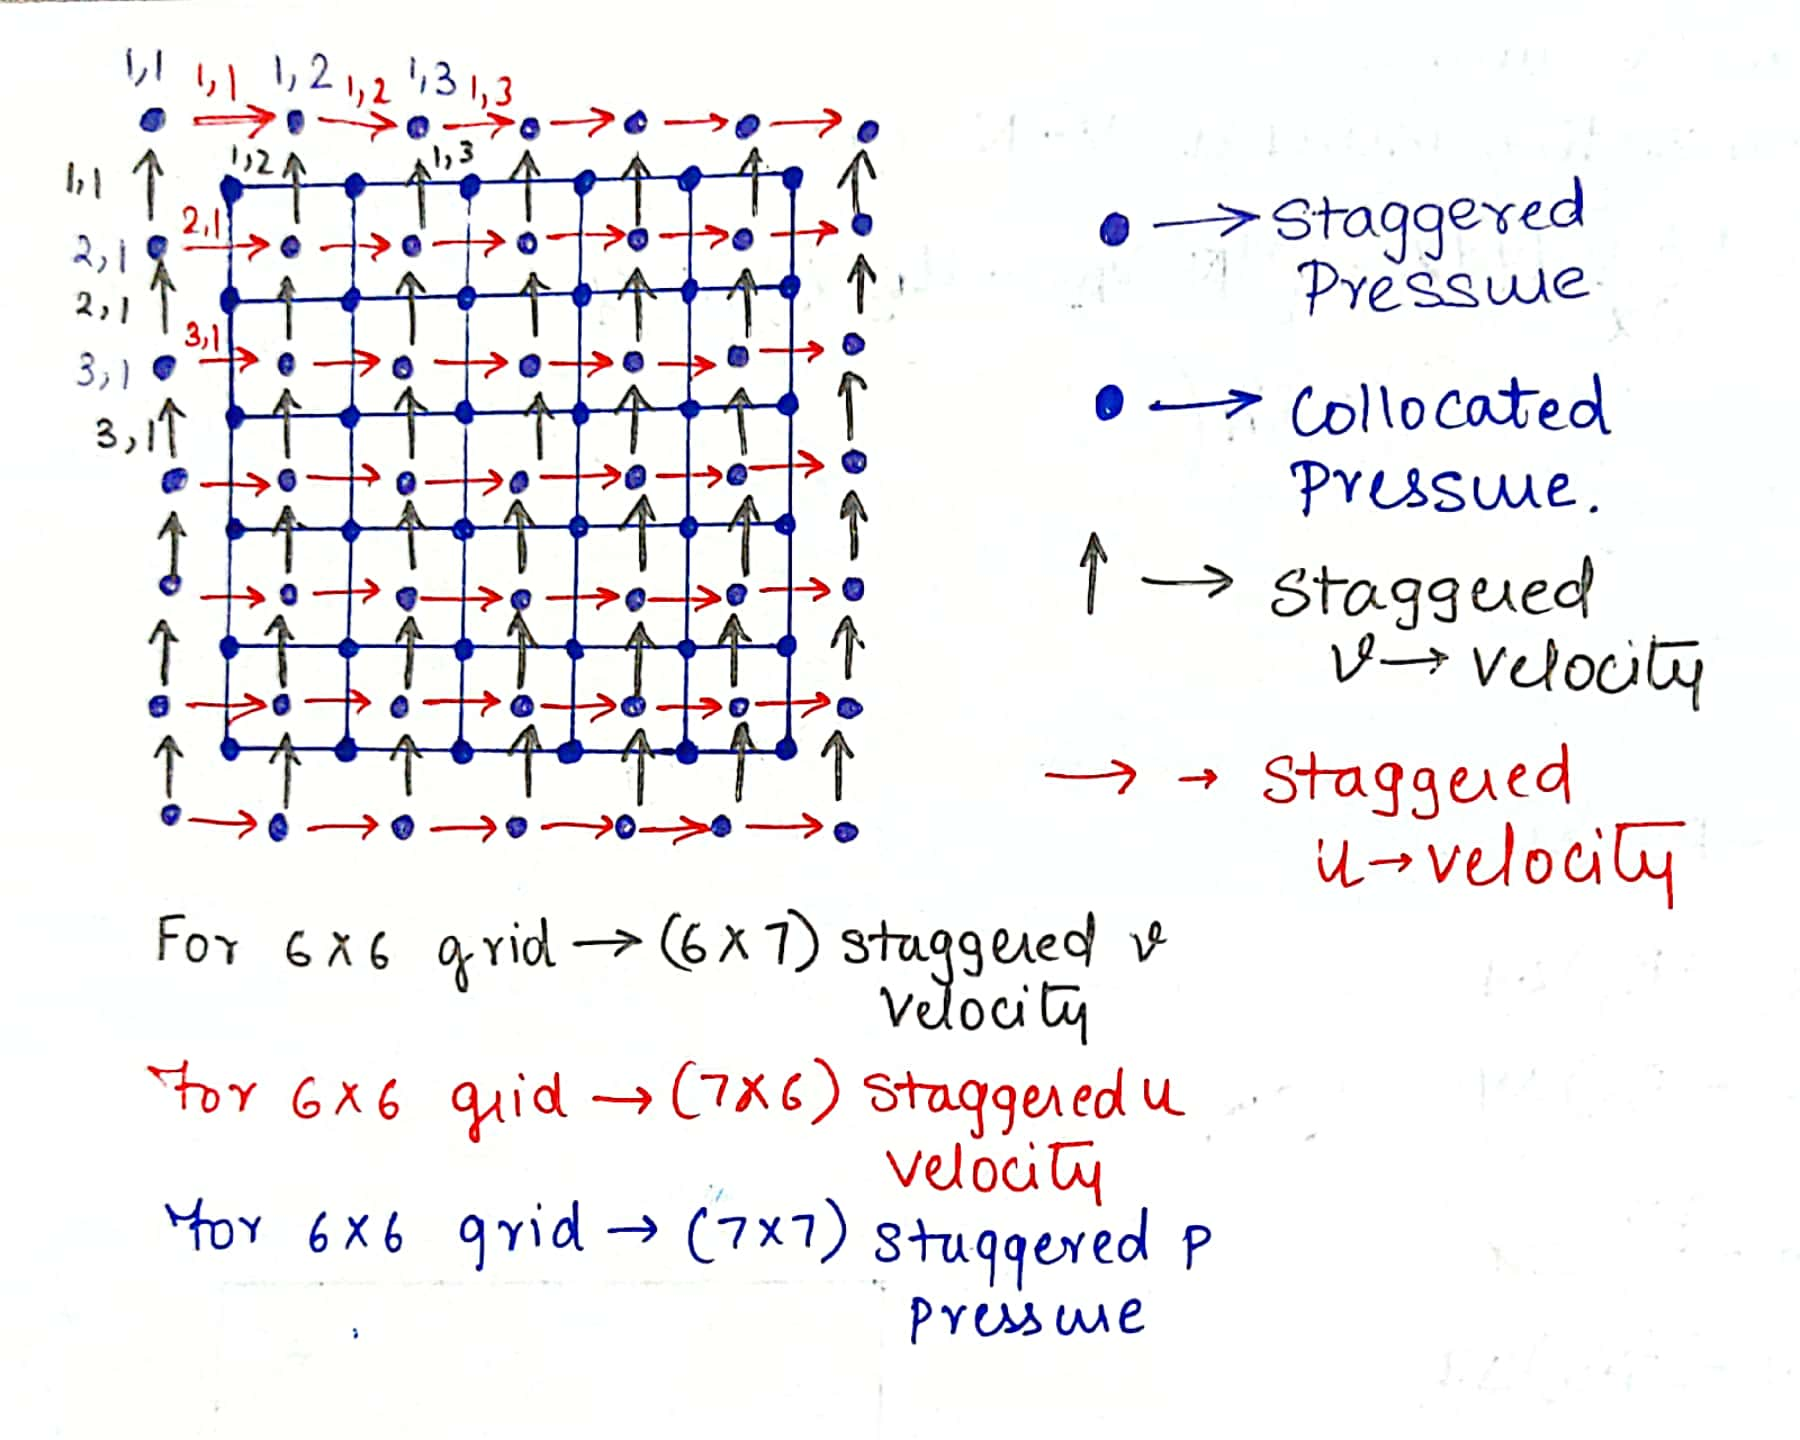 1,1 1,1 1,2 1,2 1,3 1,3
1,1 1,2 1,3
2,1
2,1
2,1
3,1
3,1
3,1
Staggered
Pressure
Collocated
Pressure.
Staggered
v → velocity
→ Staggered
u → velocity
For 6 x 6 grid → (6 x 7) staggered v
velocity
For 6 x 6 grid → (7 x 6) Staggered u
velocity
For 6 x 6 grid → (7 x 7) stuggered p
pressure